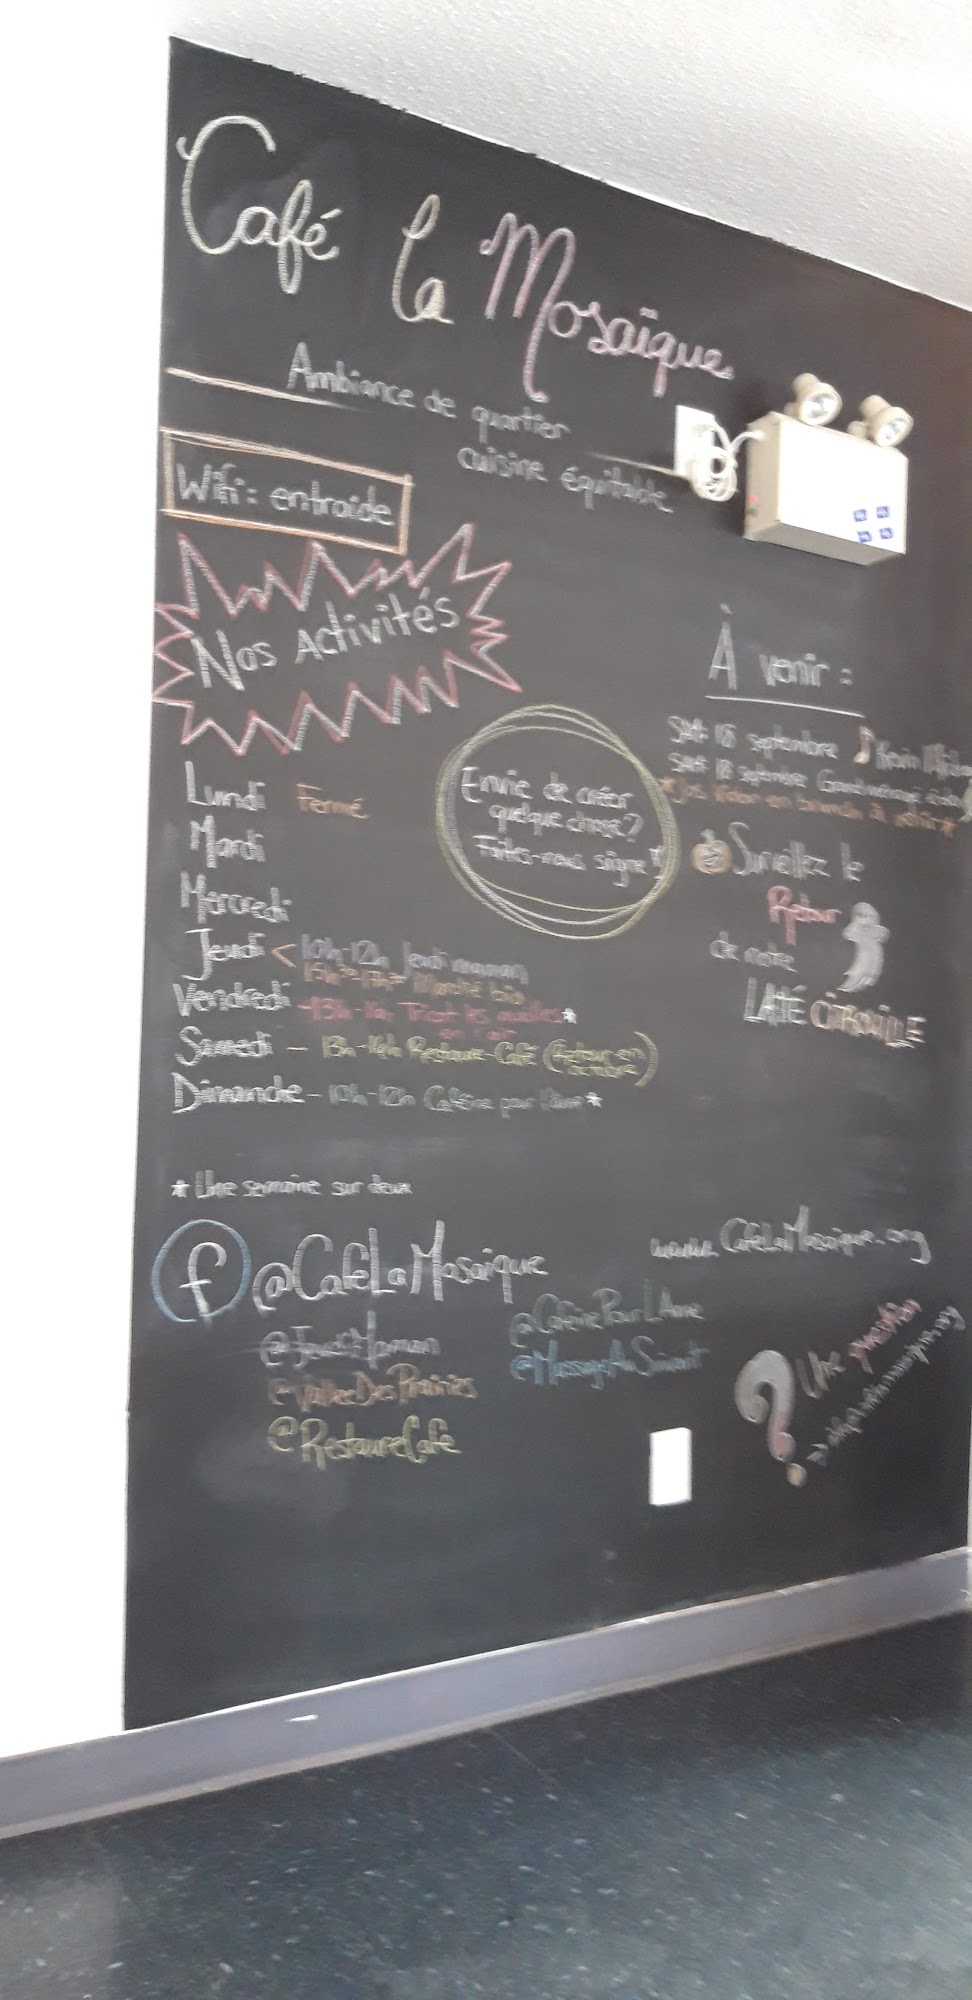 Café la Mosaïque
Ambiance de quartier
cuisine équitable
Wifi: entraide
Nos Activités
Lundi Fermé
Mardi
Mercredi
Jeudi < 10h-12h Jeudi maman
Marché bio
Vendredi - 13h-16h Tricot les mailles*
en l'air
Samedi - 13h-16h Restaure-Café (Retour en
octobre)
Dimanche - 10h-12h Caféine pour l'âme*
* Une semaine sur deux
Envie de créer
quelque chose?
Faites-nous signe!
À venir :
SAM 18 septembre Kevin
SAM 18 septembre Grand ménagé
Surveillez le
Retour
de notre
LATTÉ CITROUILLE
f @CafeLaMosaique
@JeudiMaman
@ValleeDesPrairies
@RestaureCafé
@CaféinePourLAme
@MassageAuSuivant
www.CafeLaMosaique.org
? Une question